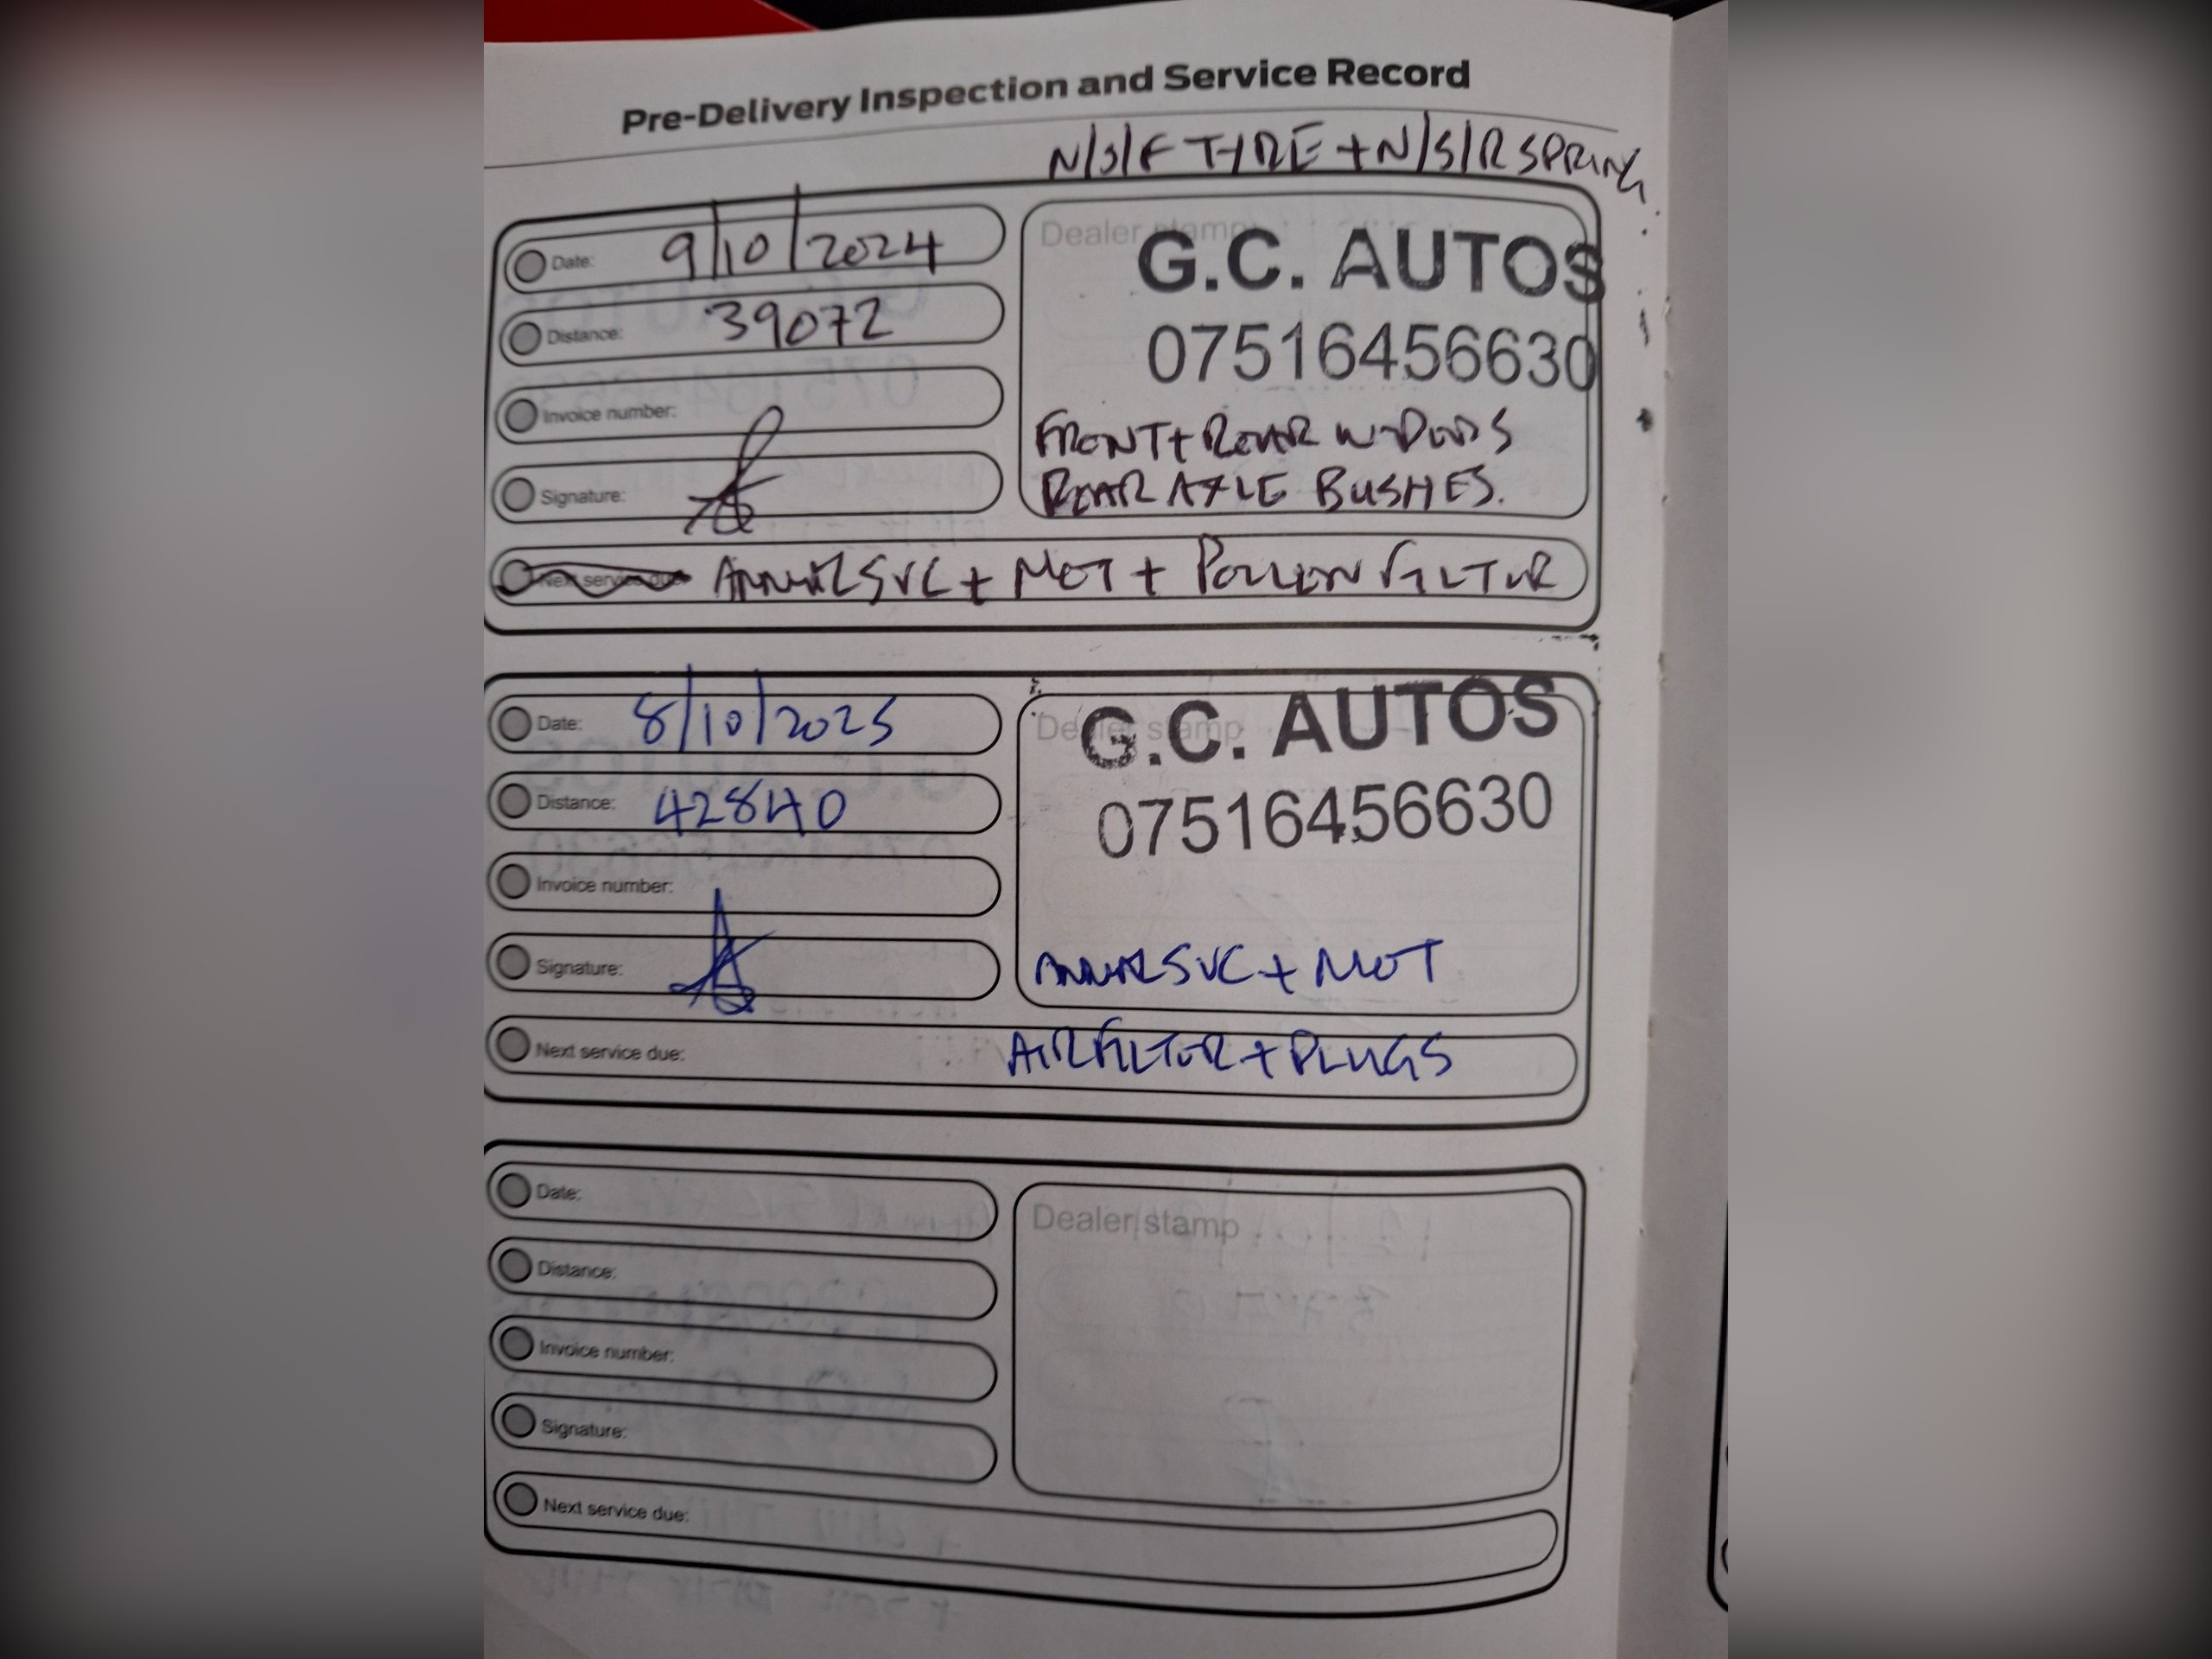 Pre-Delivery Inspection and Service Record
N/S/F TYRE + N/S/R SPRING
Date: 9/10/2024
Distance: 39072
Invoice number:
Signature:
Dealer stamp
G.C. AUTOS
07516456630
FRONT + REAR
REAR AXLE BUSHES.
Next service due: ANNUAL SVC + MOT + POLLEN FILTER
Date: 8/10/2025
Distance: 42840
Invoice number:
Signature:
Dealer stamp
G.C. AUTOS
07516456630
ANNUAL SVC + MOT
Next service due: AIR FILTER + PLUGS
Date:
Distance:
Invoice number:
Signature:
Next service due:
Dealer stamp